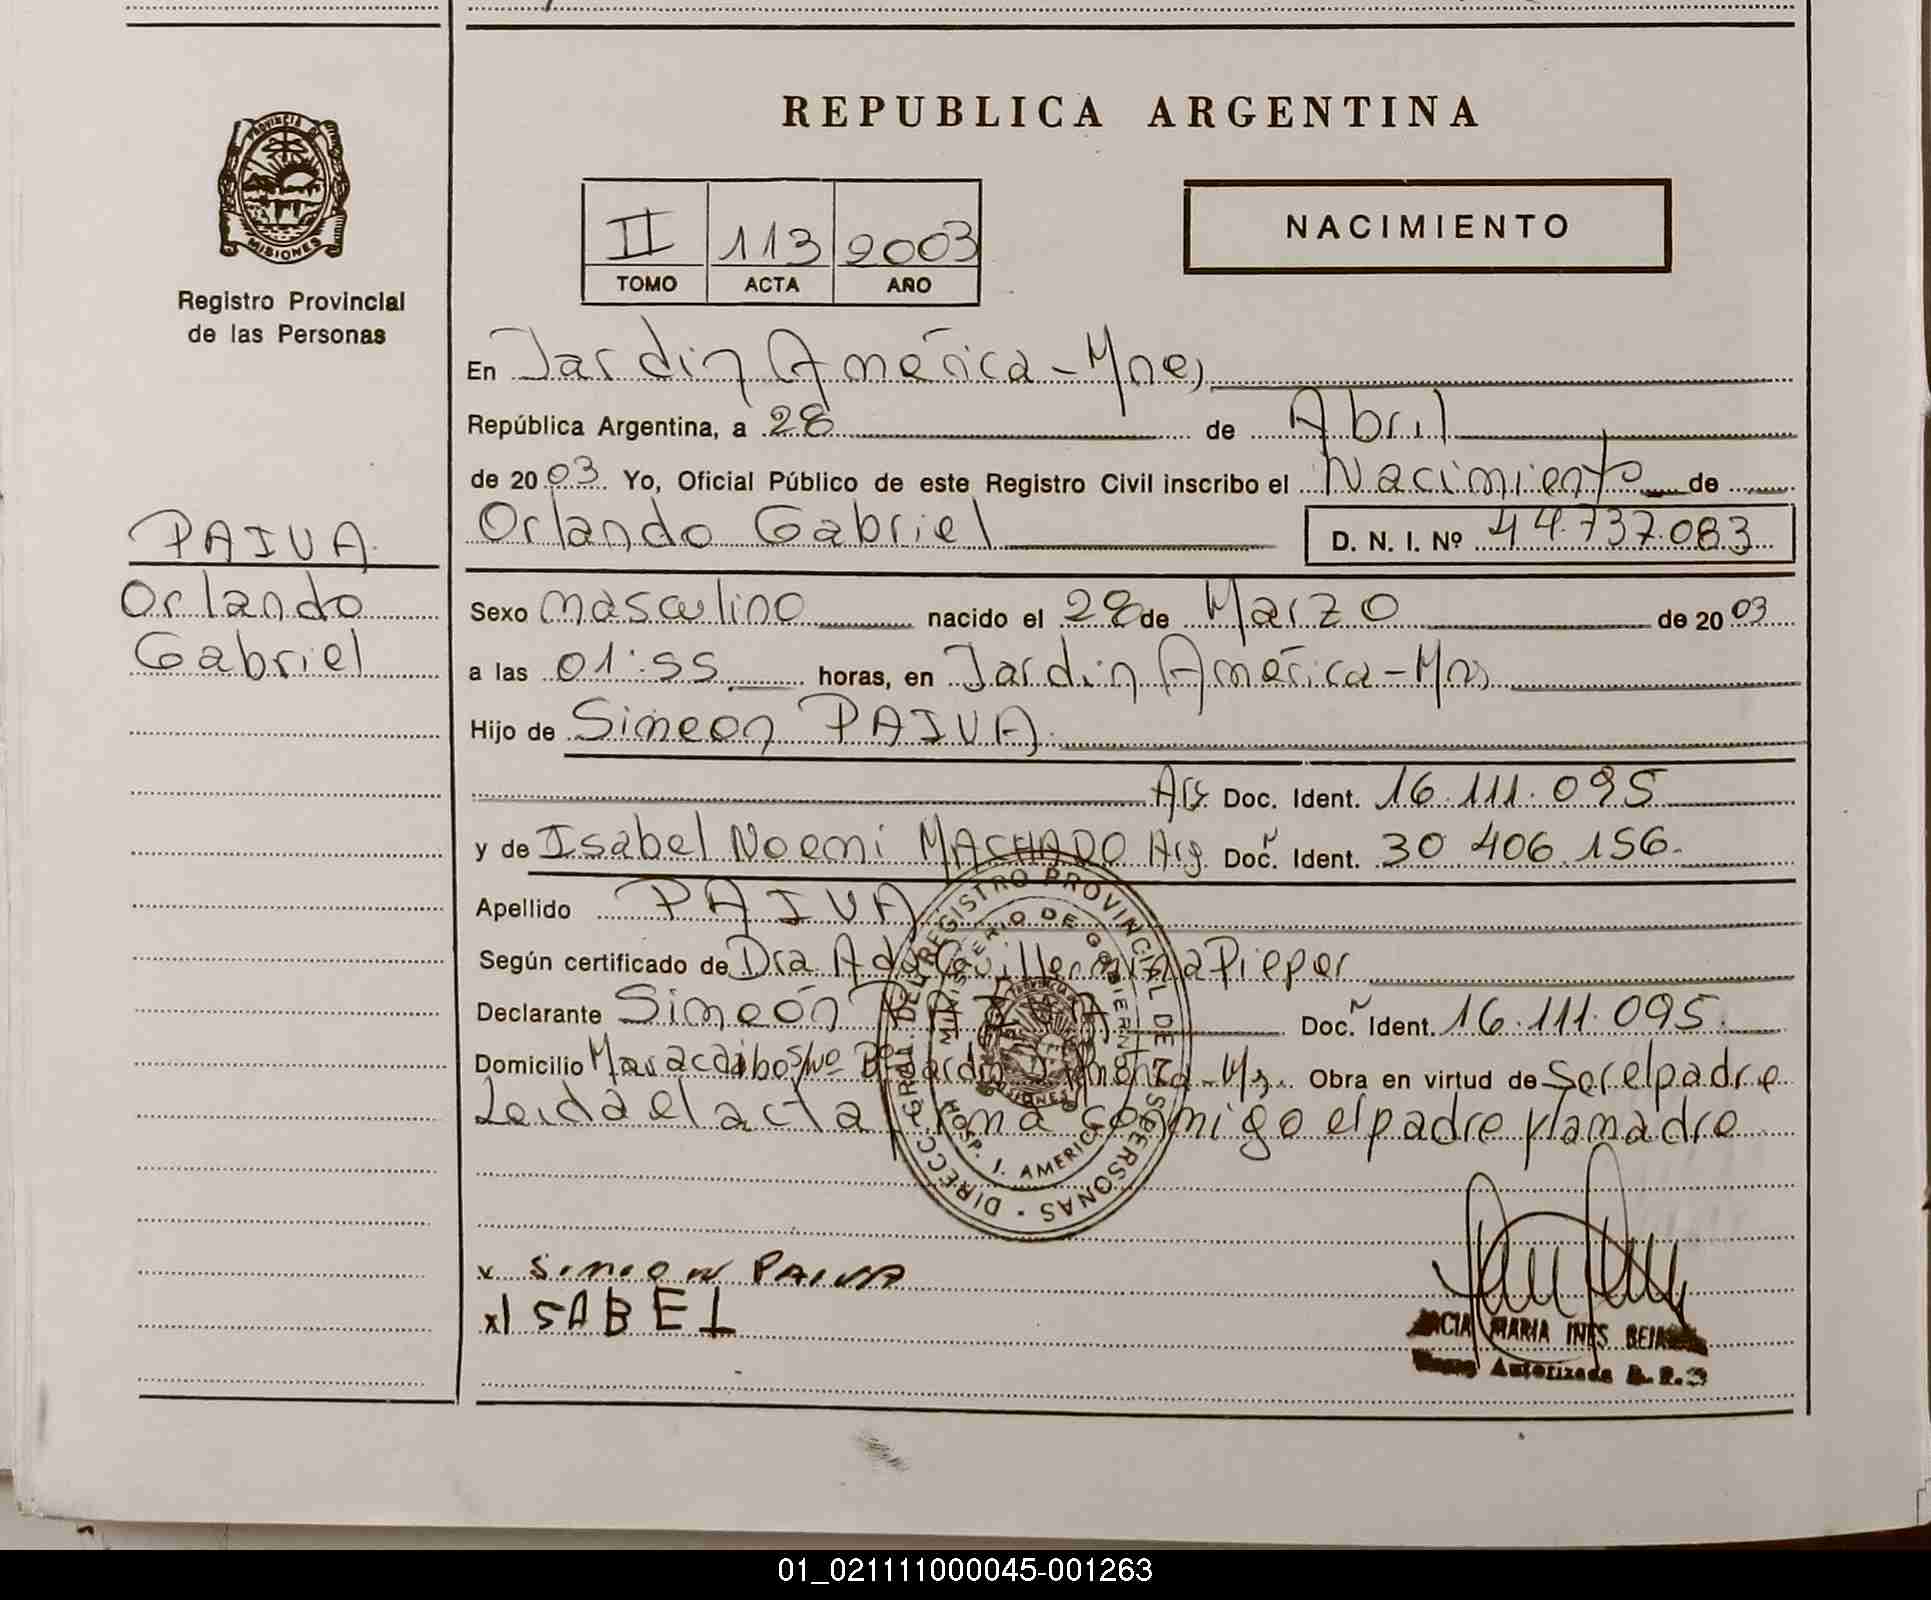 REPUBLICA ARGENTINA
PROVINCIA DE
MISIONES
Registro Provincial
de las Personas
NACIMIENTO
II 113 2003
TOMO ACTA AÑO
En Jardin América-Mnes,
República Argentina, a 28 de Abril
de 2003 Yo, Oficial Público de este Registro Civil inscribo el Nacimiento de
PAIVA
Orlando
Gabriel
Orlando Gabriel D. N. I. Nº 44.737.083
Sexo masculino nacido el 28 de Marzo de 2003
a las 01:55 horas, en Jardin América-Mns
Hijo de Simeon PAIVA
Arg. Doc. Ident. 16.111.095
y de Isabel Noemi MACHADO Arg. Doc. Ident. 30 406.156.
Apellido PAIVA
Según certificado de Dra Ada Guillermina Pieper
Declarante Simeón PAIVA Doc. Ident. 16.111.095.
Domicilio Maracaibo s/nº Jardin América-Ms. Obra en virtud de Ser el padre
Leida el acta firma conmigo el padre y la madre
DIRECC. GRAL. DEL REGISTRO PROVINCIAL DE LAS PERSONAS
MINISTERIO DE GOBIERNO
HOSP. J. AMERICA
x SIMEON PAIVA
x ISABEL
MARIA INES
Autorizada
01_021111000045-001263